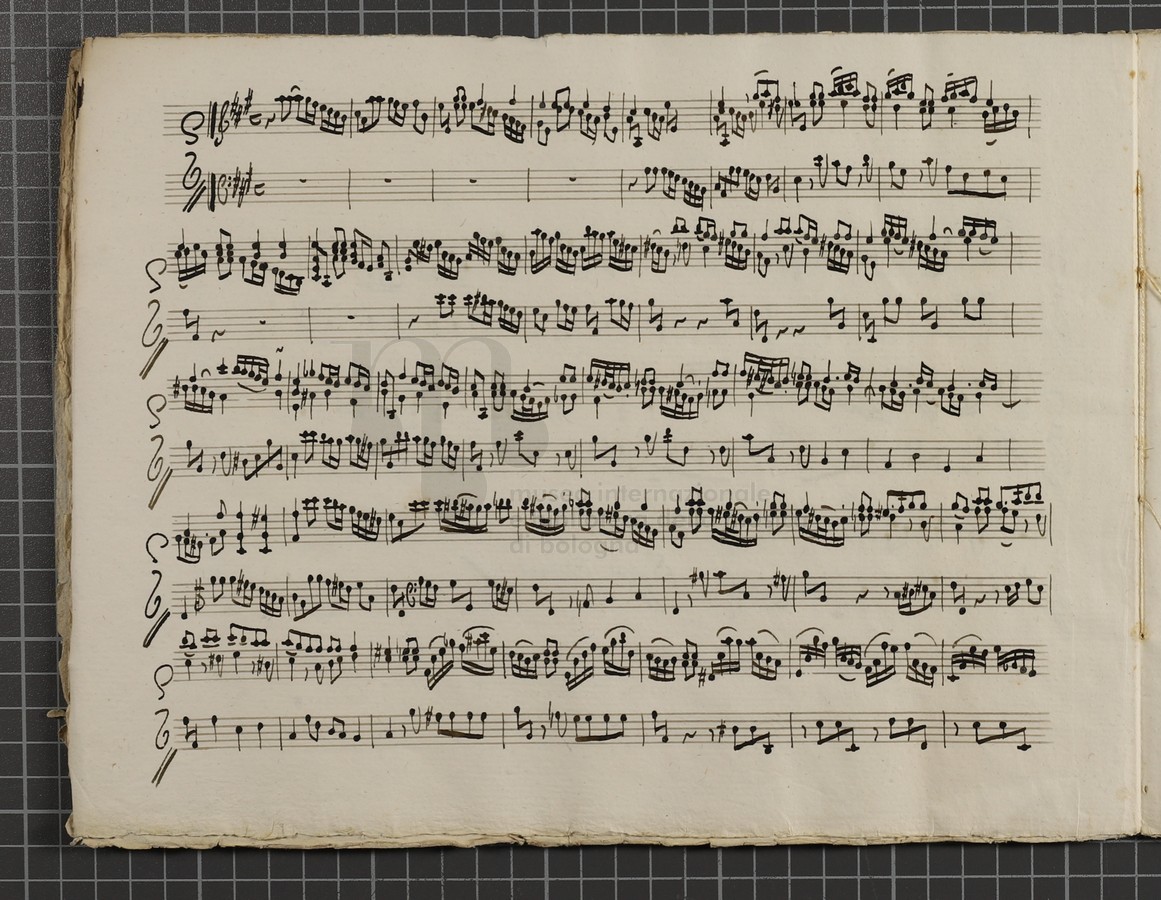 m
museo internazionale
di bologna